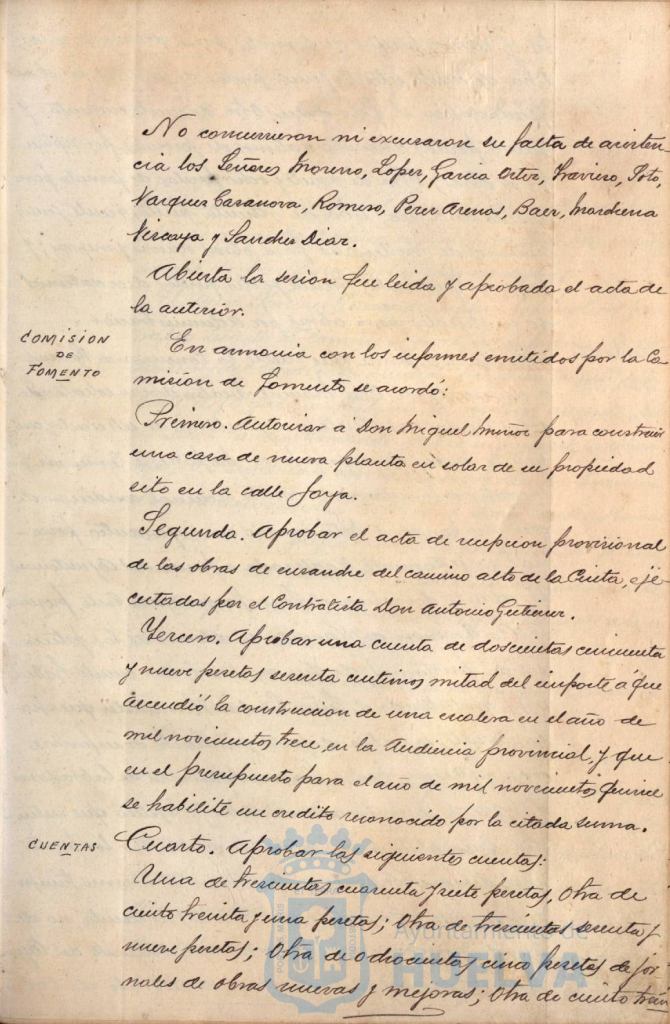 No concurrieron ni excusaron su falta de asisten-
cia los Señores Moreno, Lopez, Garcia Ortiz, Travieso, Soto,
Vazquez Casanova, Romero, Perez Arenas, Baez, Marchena
Vizcaya y Sanchez Diaz.
Abierta la sesion fue leida y aprobada el acta de
la anterior.
COMISION
DE
FOMENTO
En armonia con los informes emitidos por la Co
mision de Fomento se acordó:
Primero. Autorizar á Don Miguel Muñoz para construir
una casa de nueva planta en solar de su propiedad
sito en la calle Joya.
Segundo. Aprobar el acta de recepcion provisional
de las obras de ensanche del camino alto de la Cinta, eje
cutadas por el Contratista Don Antonio Gutierrez.
Tercero. Aprobar una cuenta de doscientas cincuenta
y nueve pesetas sesenta centimos mitad del importe á que
ascendió la construccion de una escalera en el año de
mil novecientos trece, en la Audiencia provincial, y que
en el presupuesto para el año de mil novecientos quince
se habilite un credito reconocido por la citada suma.
CUENTAS
Cuarto. Aprobar las siguientes cuentas:
Una de trescientas cuarenta y siete pesetas, Otra de
ciento treinta y una pesetas; Otra de trescientas sesenta y
nueve pesetas; Otra de ochocientas cinco pesetas de jor
nales de obras nuevas y mejoras; Otra de ciento trein
Ayuntamiento de
HUELVA